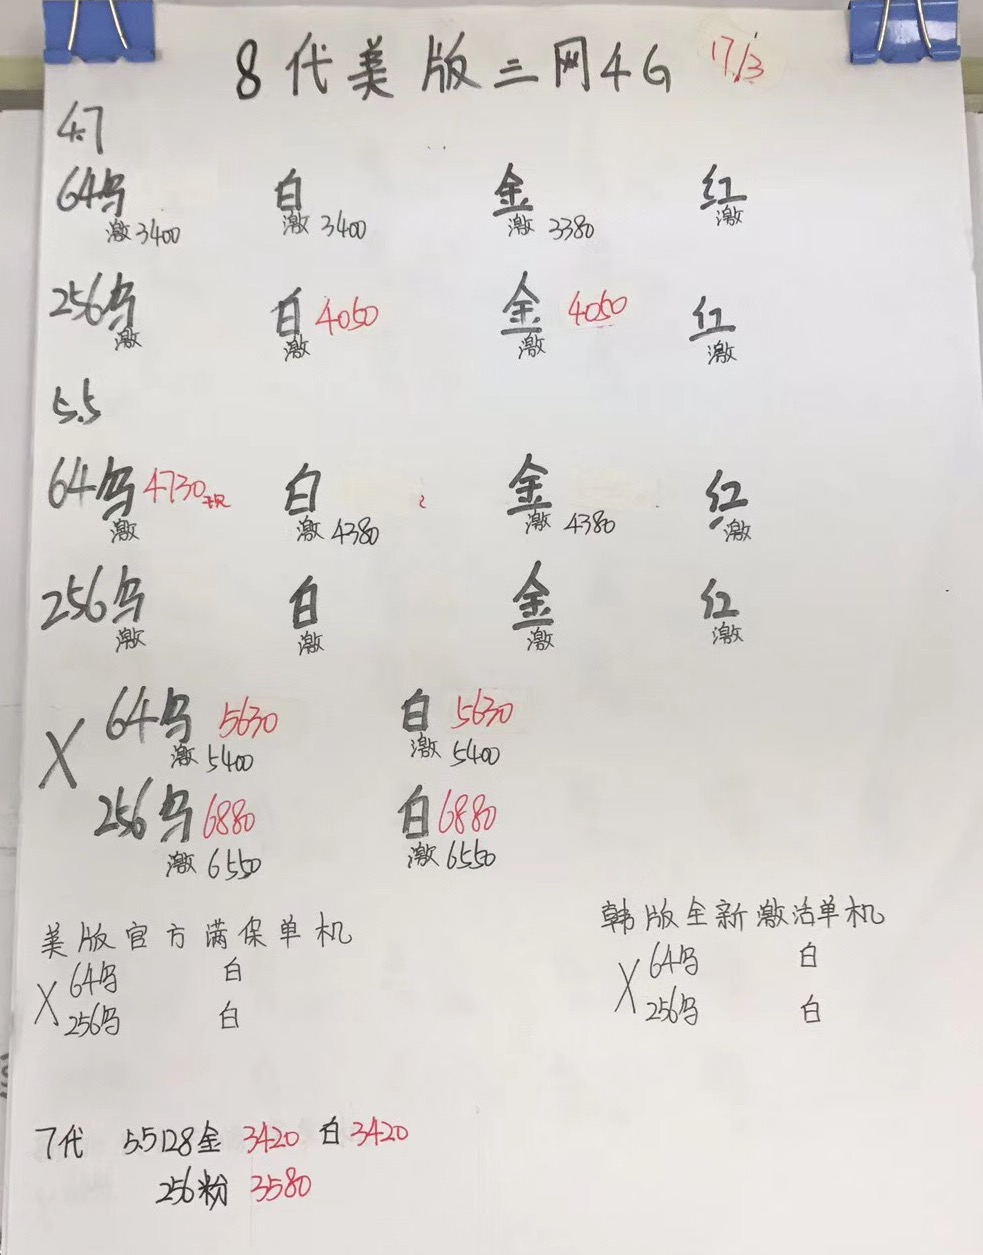 8代美版三网4G 17/3
4.7
64乌 白 金 红
激3400 激3400 激3380 激
256乌 白4050 金4050 红
激 激 激 激
5.5
64乌4730 白 金 红
激 激4380 激4380 激
256乌 白 金 红
激 激 激 激
X 64乌 5630 白5630
激5400 激5400
256乌6880 白6880
激6550 激6550
美版官方满保单机
X 64乌 白
256乌 白
韩版全新激活单机
X 64乌 白
256乌 白
7代 5.5 128金 3420 白3420
256粉 3580